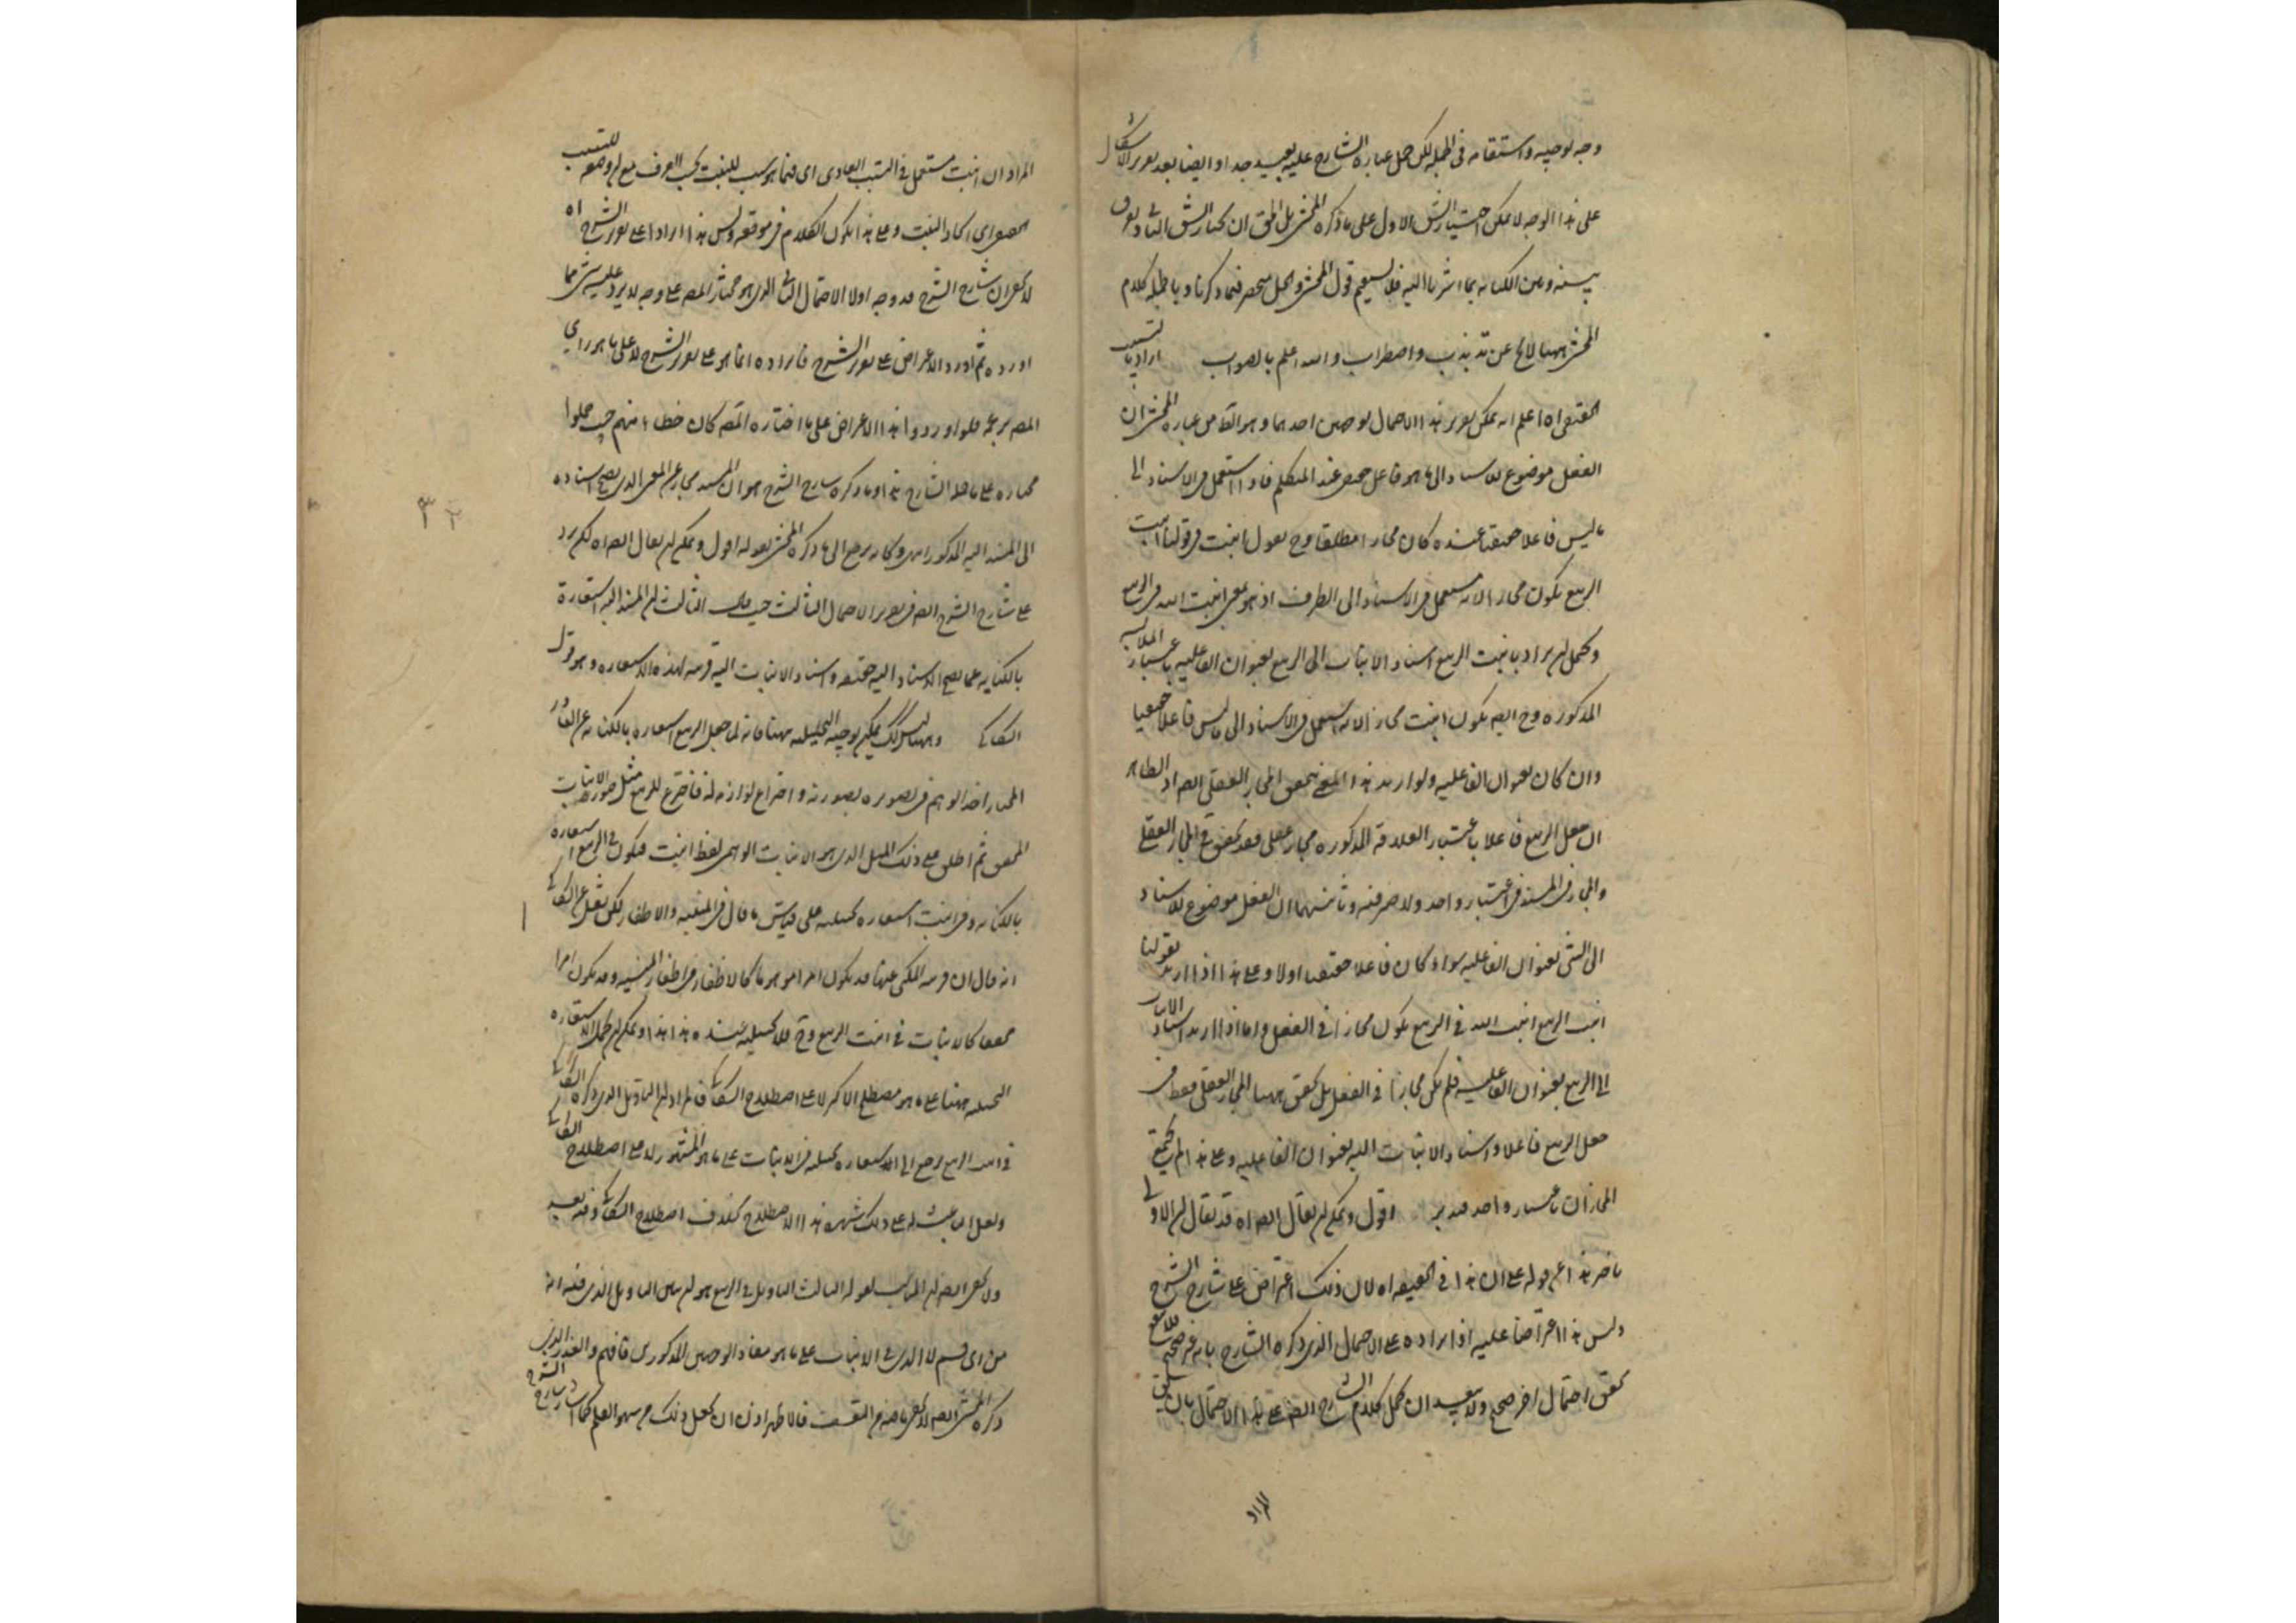 وجه توجيه واستقامه فى الجمله لكن حمل عبارة الشارح عليه بعيد جدا وايضا بعد تقرير الاشكال
على هذا الوجه لا يمكن اختيار الشق الاول على ما ذكره المحشى بل الحق ان يختار الشق الثانى ويفرق
بينه وبين الكنايه بما اشرنا اليه فلا يستقيم قول المحشى والحمل منحصر فيما ذكرنا وبالجملة كلام
المحشى ههنا لا يخ عن تذبذب واضطراب والله اعلم بالصواب اراد بالتسبب
الحقيقى اه اعلم انه يمكن تقرير هذا الاحتمال بوجهين احدهما وهو الظ من عبارة المحشى ان
الفعل موضوع للاسناد الى ما هو فاعل حقيقى عند المتكلم فاذا استعمل فى الاسناد الى
ما ليس فاعلا حقيقيا عنده كان مجازا مطلقا وح نقول انبت فى قولنا انبت
الربيع يكون مجازا لانه مستعمل فى الاسناد الى الظرف اذ هو بمعنى انبت الله فى الربيع
ويحتمل ان يراد بانبت الربيع اسناد الانبات الى الربيع بعنوان الفاعليه باعتبار الملابسه
المذكوره وح ايضا يكون انبت مجازا لانه استعمل فى الاسناد الى ما ليس فاعلا حقيقيا
وان كان بعنوان الفاعليه ولو اريد هذا المعنى تحقق المجاز العقلى ايضا اذ الظاهر
ان جعل الربيع فاعلا باعتبار العلاقة المذكوره مجاز عقلى فقد تحقق المجاز العقلى
والمجاز فى المسند فى اعتبار واحد ولا ضير فيه وثانيهما ان الفعل موضوع للاسناد
الى الشئ بعنوان الفاعليه سواء كان فاعلا حقيقيا او لا وعلى هذا اذا اريد بقولنا
انبت الربيع انبت الله فى الربيع يكون مجازا فى الفعل واما اذا اريد اسناد الانبات
الى الربيع بعنوان الفاعليه فلم يكن مجازا فى الفعل بل تحقق ههنا المجاز العقلى فقط فى
جعل الربيع فاعلا واسناد الانبات اليه بعنوان الفاعليه وعلى هذا لم يجتمع
المجازان باعتبار واحد فتدبر اقول ويمكن ان يقال ايضا اه قد يقال ان الاولى
تاخير هذا عن قوله على ان هذا فى الحقيقه اه لان ذلك اعتراض على شارح الشرح
وليس هذا اعتراضا عليه اذ ايراده على الاحتمال الذى ذكره الشارح بانه غير صحيح
تحقق احتمال اخر صحيح ولا يبعد ان يحمل كلام شارح الشرح ايضا على هذا الاحتمال بان
المراد
المراد ان انبت مستعمل فى التسبب العادى اى فيما هو سبب للنبت بحسب العرف مع ان وضعه للتسبب
الحقيقى اى ايجاد النبت وعلى هذا يكون الكلام فى موقعه وليس هذا ايرادا على تقرير الشرح اه
لا يخفى ان شارح الشرح قد وجه اولا الاحتمال الثانى الذى هو مختار المص على وجه لا يرد عليه شئ مما
اورده ثم اورد الاعتراض على تقرير الشرح فايراده انما هو على تقرير الشرح لا على ما هو راى
المص فلو اوردوا هذا الاعتراض على ما اختاره المص كان خطا منهم حيث حملوا
مختاره على ما حمله الشارح هذا وما ذكره شارح الشرح هو ان المسند مجاز عن المعنى الذى يصح اسناده
الى المسند اليه المذكور انتهى وكانه يرجع الى ما ذكره المحشى بقوله اقول ويمكن ان يقال ايضا اه لكن يرد
على شارح الشرح ايضا فى تقرير الاحتمال الثالث حيث قال الثالث ان المسند اليه استعارة
بالكنايه عما يصح الاسناد اليه حقيقه واسناد الانبات اليه قرينه لهذه الاستعاره وهو قول
السكاكى وههنا يمكن توجيه التخييليه ههنا فانه لما جعل الربيع استعاره بالكنايه عن القادر
المختار اخذ الوهم فى تصويره بصورته واختراع لوازمه له فاخترع للربيع مثل صورة الانبات
المحقق ثم اطلق على ذلك المثل الذى هو الانبات الوهمى لفظ انبت فيكون فى الربيع استعاره
بالكنايه وفى انبت استعاره تخييليه على قياس ما قال فى المنيه والاظفار لكن نقل عن السكاكى
انه قال ان قرينه المكنى عنها قد يكون امرا موهوما كالاظفار فى اظفار المنيه وقد يكون امرا
محققا كالانبات فى انبت الربيع وح فلا تخييليه عنده هذا هذا ويمكن ان يحمل الاستعاره
التخييليه ههنا على ما هو مصطلح الاكثر لا على اصطلاح السكاكى فالمراد ان التاويل الذى ذكره السكاكى
فى انبت الربيع يرجع الى الاستعاره تخييليه فى الانبات على ما هو المشهور لا على اصطلاح السكاكى
ولعل الباعث له على ذلك شهره هذا الاصطلاح بخلاف اصطلاح السكاكى وفيه بعد
ولا يخفى ايضا ان المناسب لقوله الثالث التاويل فى الربيع هو ان يبين التاويل الذى فيه انه
من اى قسم لا الذى فى الانبات على ما هو مفاد الوجهين المذكورين فافهم والعذر الذى
ذكره المحشى ايضا لا يخفى ما فيه من التعسف فالاظهر اذن ان يجعل ذلك من سهو القلم كما شارح الشرح
٣٢